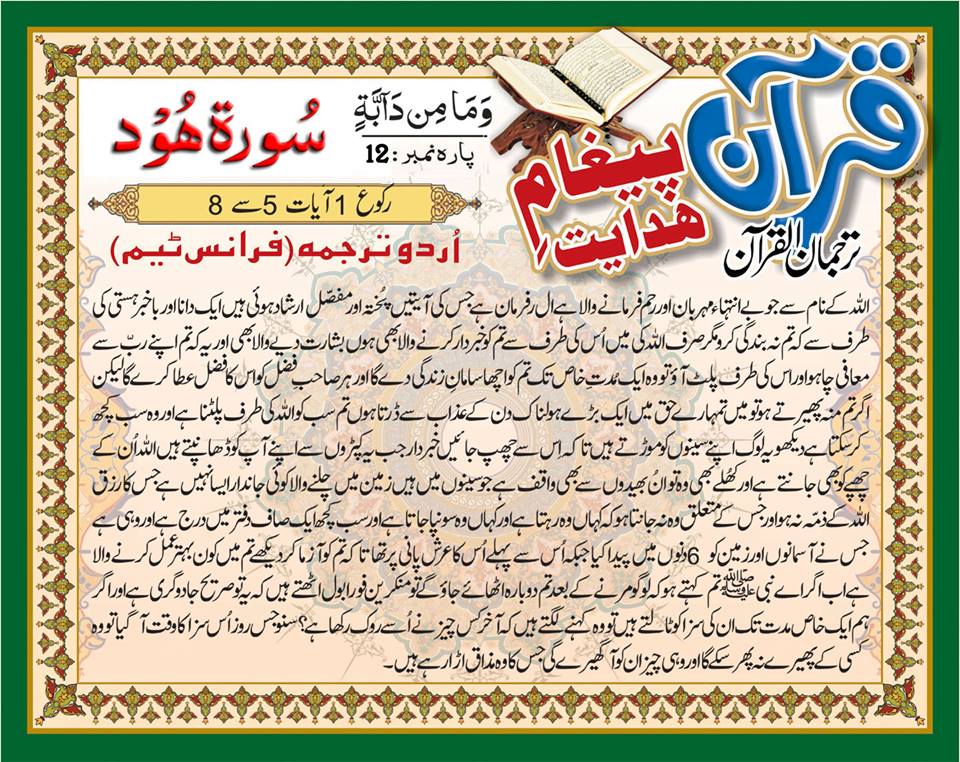 قرآن
پیغامِ
ھدایت
ترجمان القرآن
وَمَا مِن دَآبَّةٍ
پارہ نمبر: 12
سُورۃ ھُوْد
رکوع 1 آیات 5 سے 8
اُردو ترجمہ (فرانس ٹیم)
اللہ کے نام سے جو بے انتہاء مہربان اور رحم فرمانے والا ہے ال ر فرمان ہے جس کی آیتیں پختہ اور مفصّل ارشاد ہوئی ہیں ایک دانا اور باخبر ہستی کی
طرف سے کہ تم نہ بندگی کرو مگر صرف اللہ کی میں اُس کی طرف سے تم کو خبردار کرنے والا بھی ہوں بشارت دیے والا بھی اور یہ کہ تم اپنے ربّ سے
معافی چاہو اور اس کی طرف پلٹ آؤ تو وہ ایک مُدت خاص تک تم کو اچھا سامان زندگی دے گا اور ہر صاحب فضل کو اس کا فضل عطا کرے گا لیکن
اگر تم منہ پھیرتے ہو تو میں تمہارے حق میں ایک بڑے ہولناک دن کے عذاب سے ڈرتا ہوں تم سب کو اللہ کی طرف پلٹنا ہے اور وہ سب کچھ
کرسکتا ہے دیکھو یہ لوگ اپنے سینوں کو موڑتے ہیں تاکہ اِس سے چھپ جائیں خبردار جب یہ کپڑوں سے اپنے آپ کو ڈھانپتے ہیں اللہ اُن کے
چھپے کو بھی جانتے ہے اور کھُلے بھی وہ تو ان بھیدوں سے بھی واقف ہے جو سینوں میں ہیں زمین میں چلنے والا کوئی جاندار ایسا نہیں ہے جس کا رزق
اللہ کے ذمّہ نہ ہو اور جس کے متعلق وہ نہ جانتا ہو کہ کہاں وہ رہتا ہے اور کہاں وہ سونپا جاتا ہے اور سب کچھ ایک صاف دفتر میں درج ہے اور وہی ہے
جس نے آسمانوں اور زمین کو 6 دنوں میں پیدا کیا جبکہ اُس سے پہلے اُس کا عرش پانی پر تھا تا کہ تم کو آزما کر دیکھے تم میں کون بہتر عمل کرنے والا
ہے اب اگر اے نبی ﷺ تم کہتے ہو کہ لوگو مرنے کے بعد تم دوبارہ اٹھائے جاؤ گے تو منکرین فورا بول اٹھتے ہیں کہ یہ تو صریح جادوگری ہے اور اگر
ہم ایک خاص مدت تک ان کی سزا کو ٹالتے ہیں تو وہ کہنے لگتے ہیں کہ آخر کس چیز نے اُسے روک رکھا ہے؟ سنو جس روز اُس سزا کا وقت آگیا تو وہ
کسی کے پھیرے نہ پھر سکے گا اور وہی چیز ان کو آ گھیرے گی جس کا وہ مذاق اڑا رہے ہیں۔